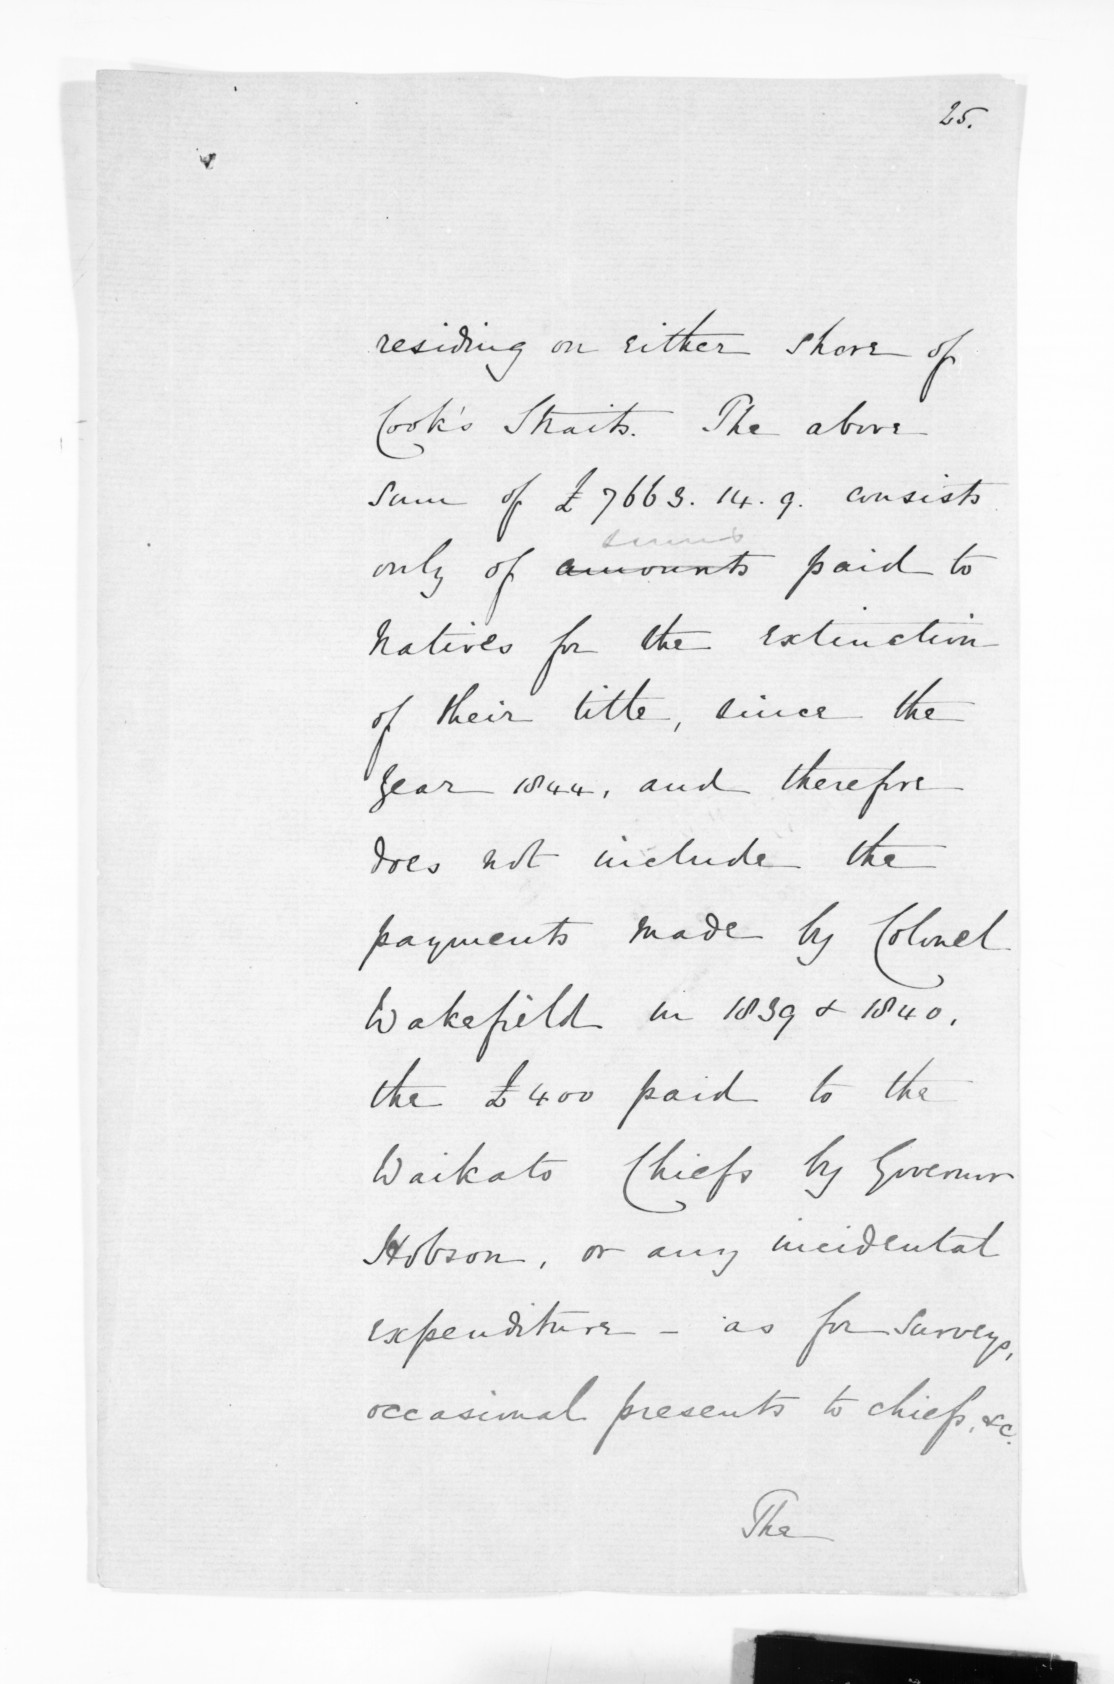 25.
residing on either shore of
Cook's Straits. The above
sum of £7663.14.9. consists
sums
only of amounts paid to
Natives for the extinction
of their title, since the
year 1844, and therefore
does not include the
payments made by Colonel
Wakefield in 1839 & 1840,
the £400 paid to the
Waikato Chiefs by Governor
Hobson, or any incidental
expenditure - as for surveys,
occasional presents to chiefs, &c.
The